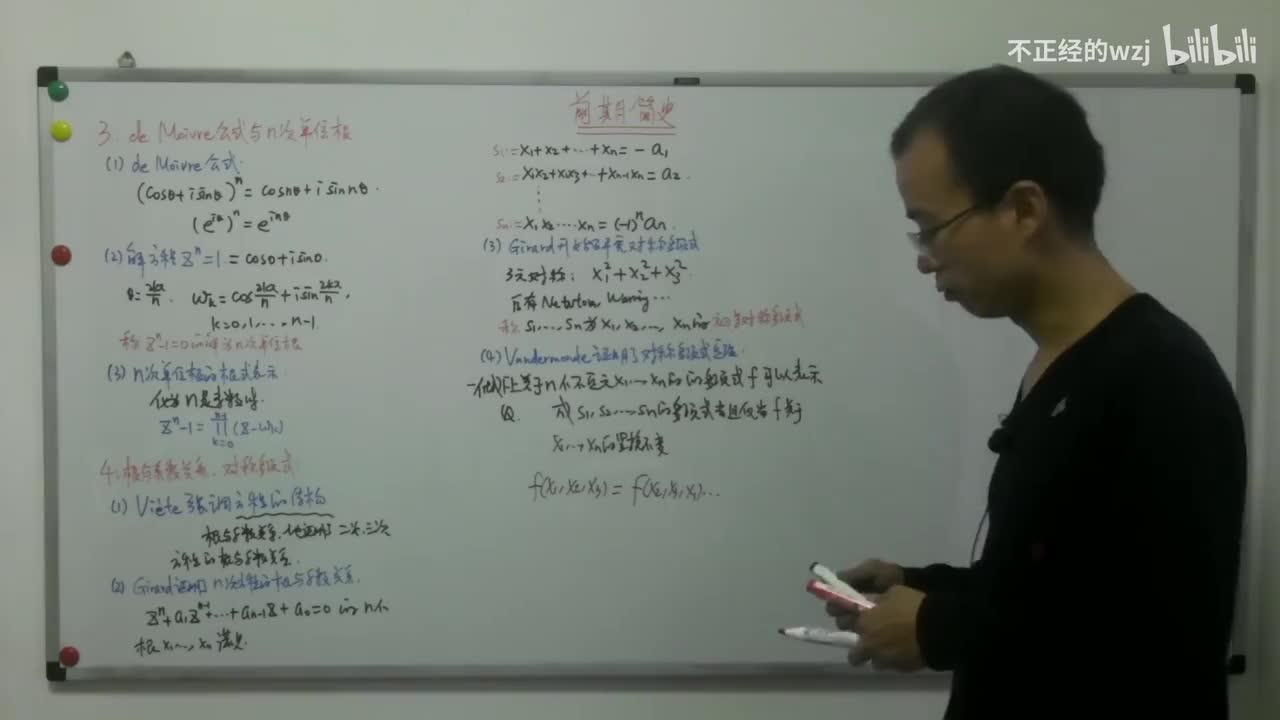 不正经的wzj bilibili
前期简史
3. de Moivre公式与n次单位根
(1) de Moivre公式.
(cosθ+i sinθ)^n = cosnθ+i sin nθ.
(e^{iθ})^n = e^{inθ}
(2) 解方程 Z^n=1 = cos0+i sin0.
θ=2kπ/n. ω_k = cos 2kπ/n + i sin 2kπ/n,
k=0,1,…,n-1.
称 Z^n-1=0的解为n次单位根
(3) n次单位根的根式表示.
仅当n是素数时.
Z^n-1 = ∏_{k=0}^{n-1} (Z-ω_k)
4. 根与系数关系、对称多项式
(1) Viète 强调方程的结构
根与系数关系. 他证明了二次.三次
方程的根与系数关系.
(2) Girard证明n次方程的根与系数关系.
Z^n+a_1Z^{n-1}+…+a_{n-1}Z+a_0=0 的n个
根 x_1…, x_n 满足.
S_1:=X_1+X_2+…+X_n=-a_1
S_2:=X_1X_2+X_1X_3+…+X_{n-1}X_n=a_2.
⋮
S_n:=X_1X_2…X_n=(-1)^n a_n.
(3) Girard开始研究对称多项式
3元对称: X_1^2+X_2^2+X_3^2
后有 Newton Waring…
称 S_1,…,S_n 为 X_1,X_2,…,X_n的初等对称多项式
(4) Vandermonde 证明了对称多项式定理.
一个域F上关于n个不定元X_1…X_n的多项式f可以表示
Q. 成 S_1,S_2…S_n的多项式当且仅当f关于
X_1…X_n的置换不变
f(x_1,x_2,x_3) = f(x_2,x_3,x_1)…